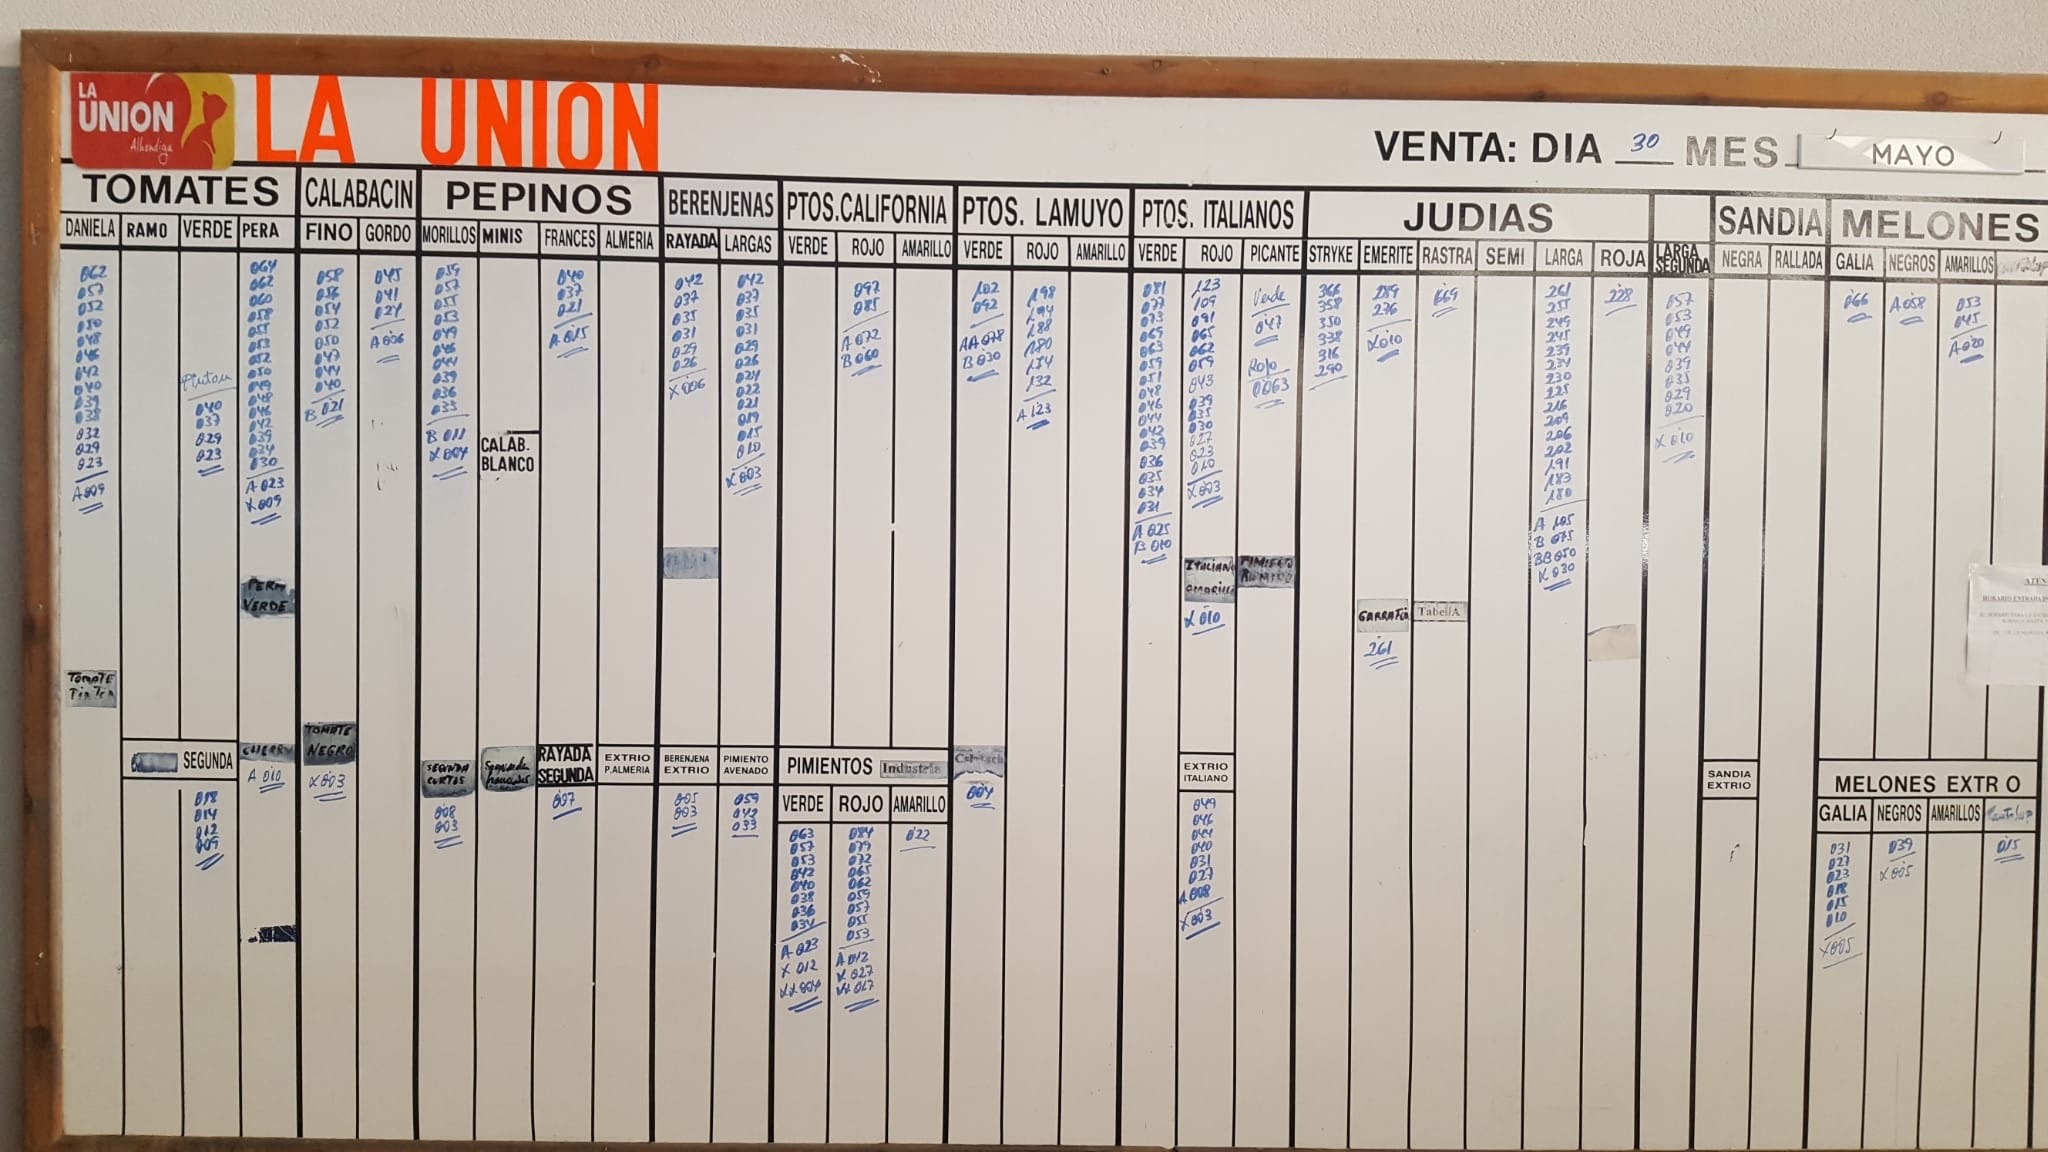 LA
UNION
Alhóndiga
LA UNION
VENTA: DIA 30 MES MAYO
TOMATES
CALABACIN
PEPINOS
BERENJENAS
PTOS.CALIFORNIA
PTOS. LAMUYO
PTOS. ITALIANOS
JUDIAS
SANDIA
MELONES
DANIELA
RAMO
VERDE
PERA
FINO
GORDO
MORILLOS
MINIS
FRANCES
ALMERIA
RAYADA
LARGAS
VERDE
ROJO
AMARILLO
VERDE
ROJO
AMARILLO
VERDE
ROJO
PICANTE
STRYKE
EMERITE
RASTRA
SEMI
LARGA
ROJA
LARGA
SEGUNDA
NEGRA
RALLADA
GALIA
NEGROS
AMARILLOS
062
057
052
050
048
046
042
040
039
038
032
029
023
A 009
040
037
029
023
064
062
060
058
055
053
052
050
049
048
046
042
039
034
030
A 023
X 009
058
056
054
052
050
047
044
040
B 021
045
041
024
A 006
059
057
055
053
049
046
044
039
036
033
B 011
X 004
CALAB.
BLANCO
040
037
021
A 015
042
037
035
031
029
026
X 006
042
037
035
031
029
026
024
022
021
019
015
010
X 003
097
085
A 072
B 060
102
092
AA 078
B 030
198
194
188
180
174
132
A 123
081
077
073
069
063
059
051
048
046
044
042
039
036
035
034
031
A 025
B 010
123
109
091
065
062
059
043
039
035
030
027
023
010
X 003
Verde
047
Rojo
0063
366
358
350
338
316
290
289
276
X 010
069
261
255
249
245
239
234
230
225
216
209
206
202
191
183
180
A 105
B 075
BB 050
X 030
228
057
053
049
044
039
035
029
020
X 010
066
A 058
053
045
A 020
PERA
VERDE
ITALIANO
AMARILLO
X 010
PIMIENTO
GARRAFON
261
TabellA
TOMATE
Tin Tin
SEGUNDA
018
014
012
009
CHERRY
A 010
TOMATE
NEGRO
X 003
SEGUNDA
CORTOS
008
003
Segunda
RAYADA
SEGUNDA
007
EXTRIO
P.ALMERIA
BERENJENA
EXTRIO
005
003
PIMIENTO
AVENADO
059
042
033
PIMIENTOS Industria
VERDE
ROJO
AMARILLO
063
057
053
042
040
038
036
034
A 023
X 012
XX 004
084
079
072
065
062
059
057
055
053
A 042
X 027
XX 017
022
004
EXTRIO
ITALIANO
049
046
044
040
031
027
A 008
X 003
SANDIA
EXTRIO
MELONES EXTR O
GALIA
NEGROS
AMARILLOS
031
027
023
018
015
010
X 005
039
X 005
015